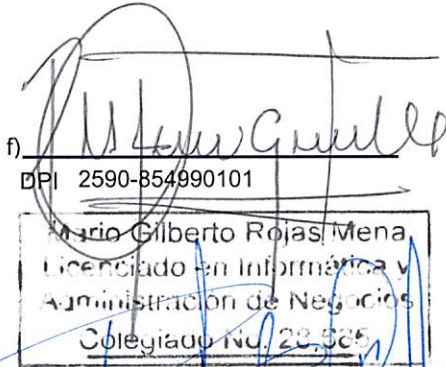 f)
DPI 2590-854990101
Mario Gilberto Rojas Mena
Licenciado en Informática y
Administración de Negocios
Colegiado No.